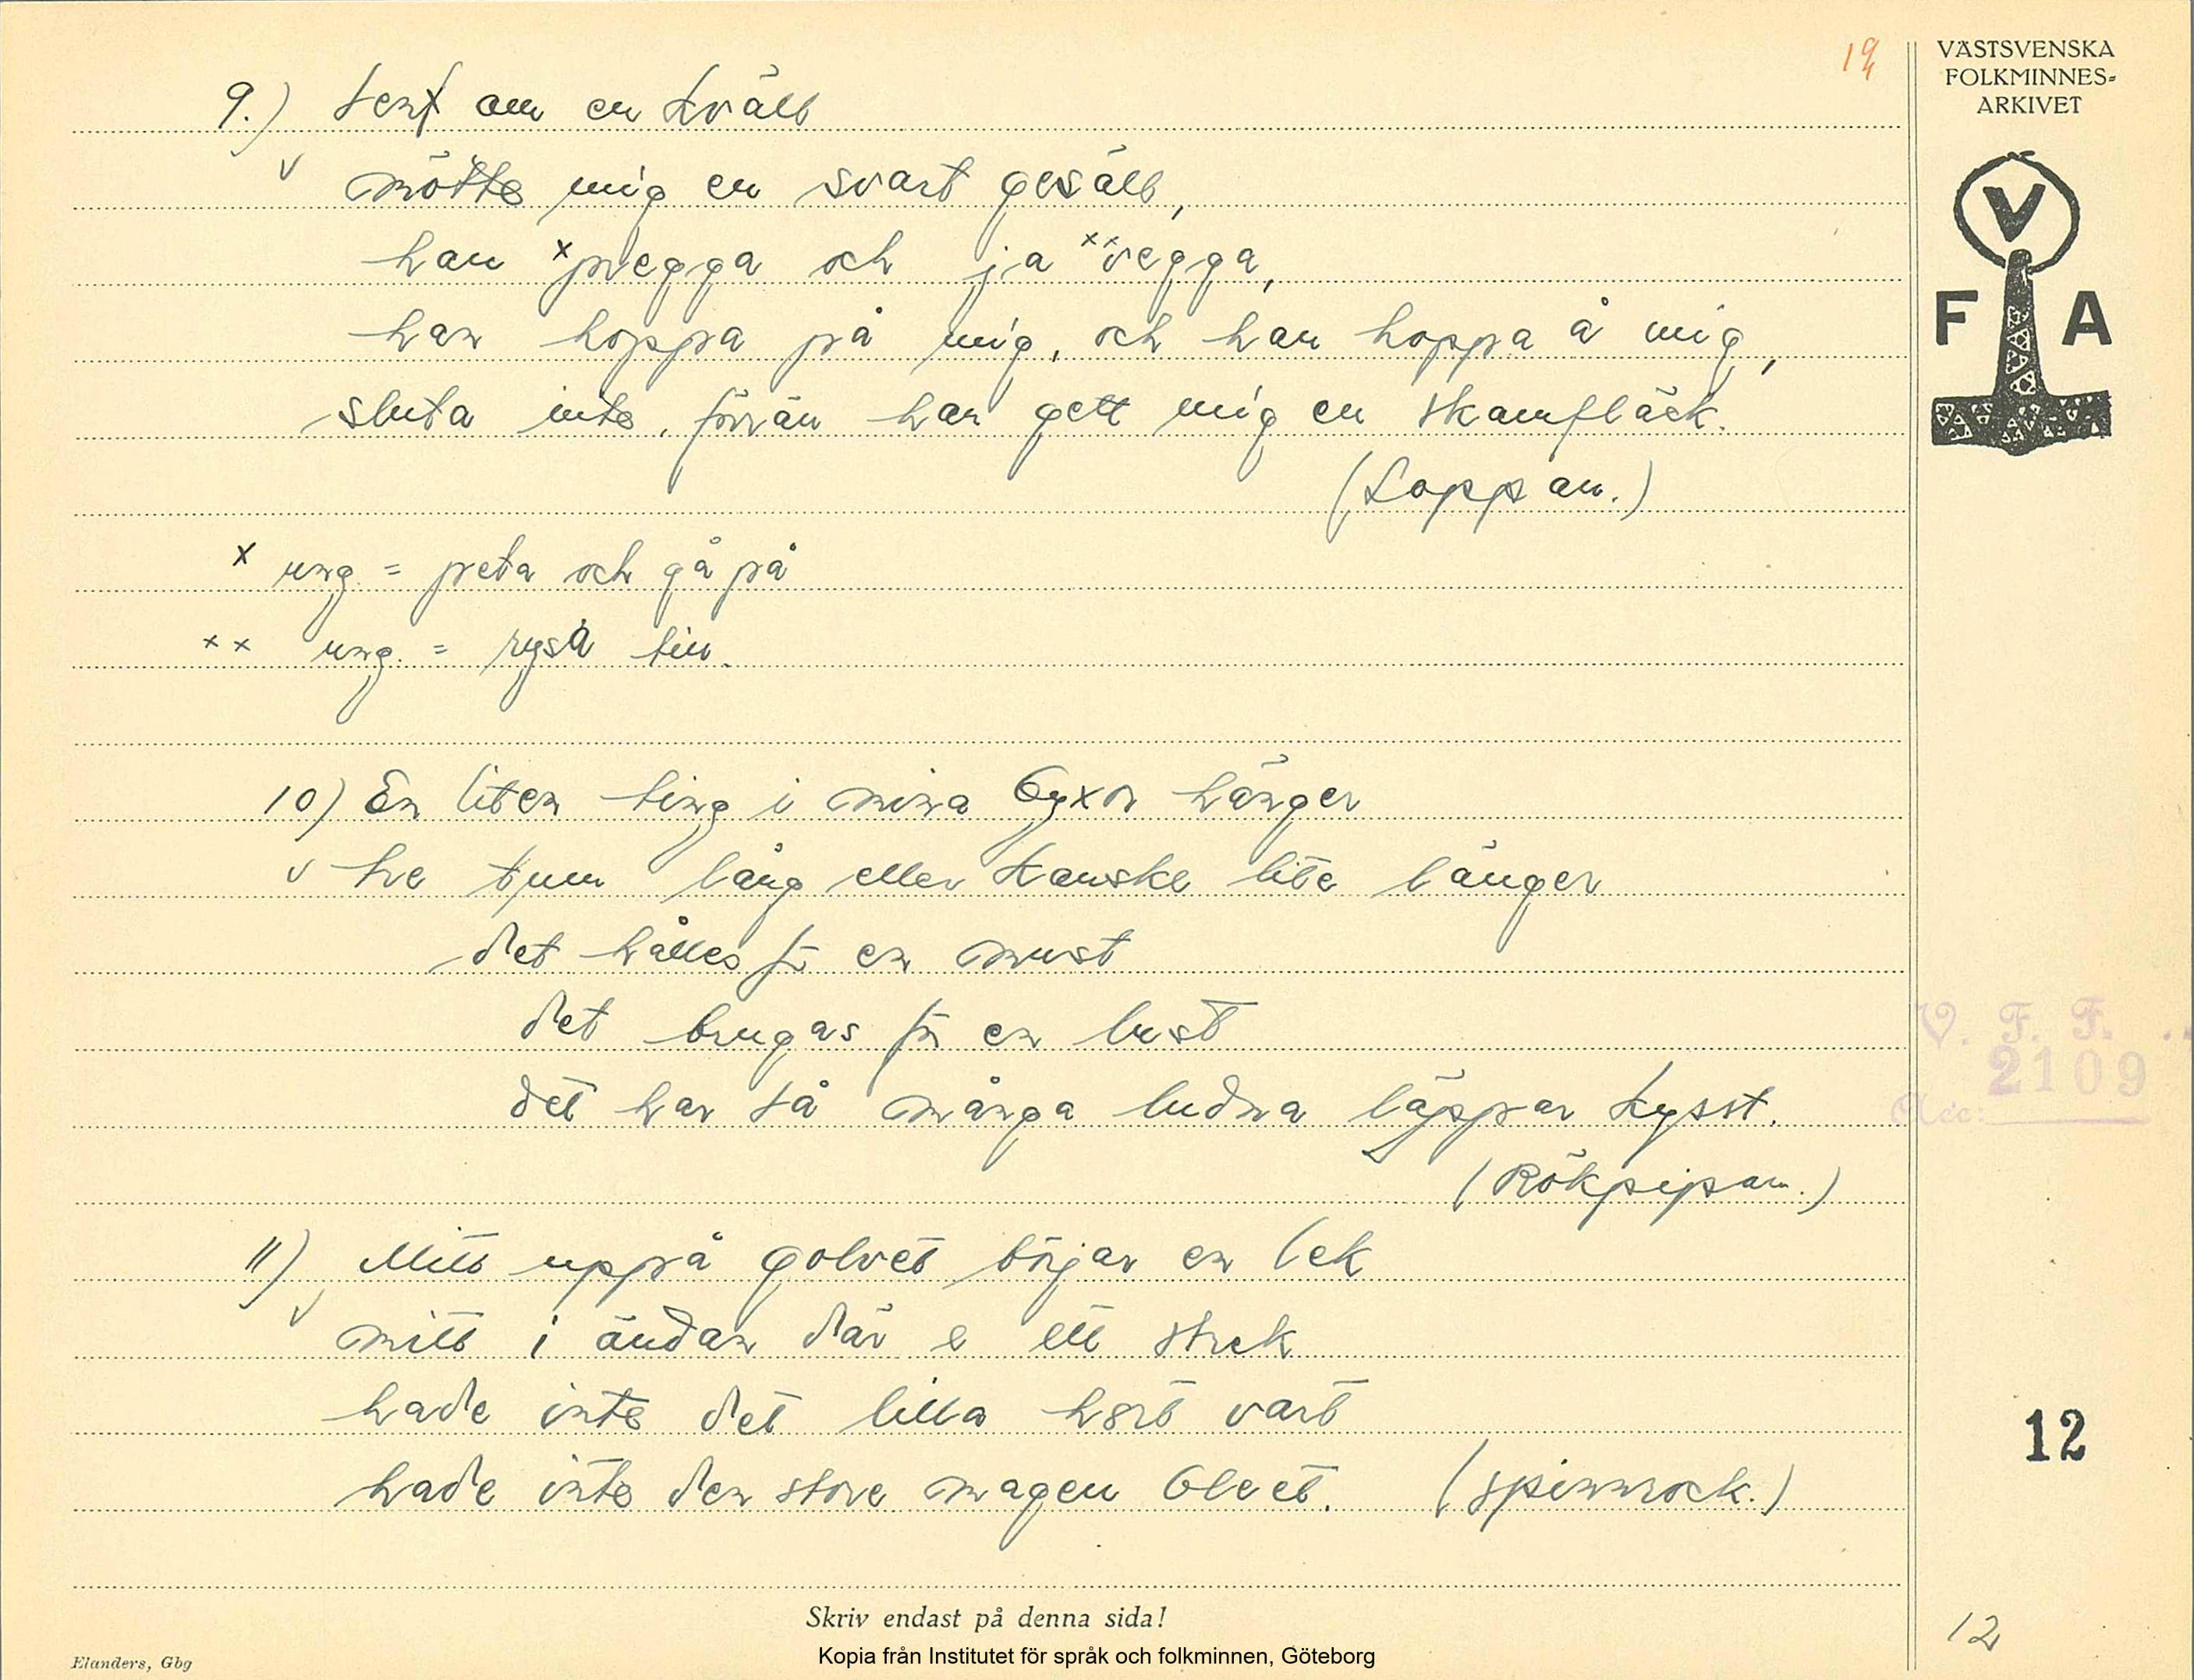 19/4
VÄSTSVENSKA
FOLKMINNES=
ARKIVET
V
F A
9.) sent om en kväll
v mötte mig en svart gesäll,
han ×pregga och ja ××vegga,
han hoppa på mig, och han hoppa å mig,
sluta inte, förrän han gett mig en skamfläck.
(Loppan.)
× ung. = peta och gå på
×× ung. = rysa till.
10) En liten ting i mina byxor hänger
v tre tum lång eller kanske lite länger
det hålles för en must
det brugas för en lust
det har så många ludna läppar kysst.
(Rökpipan.)
11) Mitt uppå golvet börjar en lek
v mitt i ändan där e ett streck
hade inte det lilla hört vart
hade inte den store magen bleet. (spinnrock.)
V. F. F.
2109
Acc:
12
12
Skriv endast på denna sida!
Elanders, Gbg
Kopia från Institutet för språk och folkminnen, Göteborg